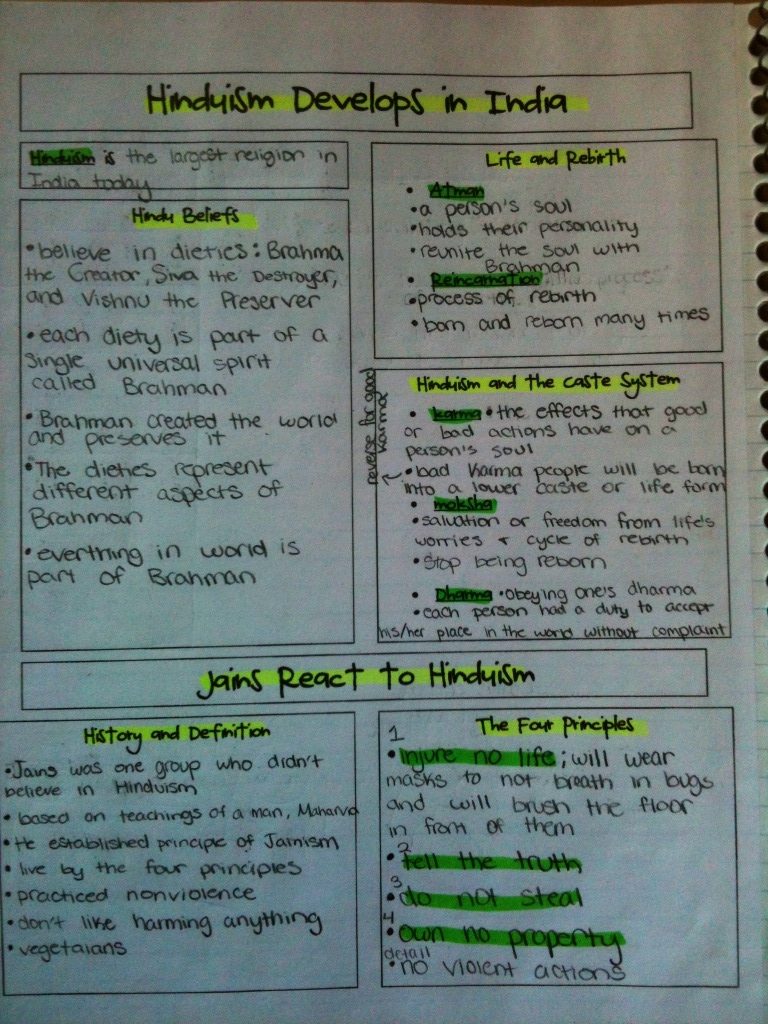 Hinduism Develops in India
Hinduism is the largest religion in
India today
Hindu Beliefs
•believe in dieties: Brahma
the Creator, Siva the Destroyer,
and Vishnu the Preserver
•each diety is part of a
single universal spirit
called Brahman
•Brahman created the world
and preserves it
•The dieties represent
different aspects of
Brahman
•everthing in world is
part of Brahman
Life and Rebirth
• Atman
•a person's soul
•holds their personality
•reunite the soul with
Brahman
• Reincarnation
•process of rebirth
•born and reborn many times
Hinduism and the Caste System
• karma •the effects that good
or bad actions have on a
person's soul
•bad karma people will be born
into a lower caste or life form
reverse for good
karma
• moksha
•salvation or freedom from life's
worries + cycle of rebirth
•Stop being reborn
• Dharma •obeying one's dharma
•each person had a duty to accept
his/her place in the world without complaint
Jains React to Hinduism
History and Definition
•Jains was one group who didn't
believe in Hinduism
•based on teachings of a man, Mahavra
•He established principe of Jainism
•live by the four principles
•practiced nonviolence
•don't like harming anything
•vegetaians
The Four Principles
1
•injure no life; will wear
masks to not breath in bugs
and will brush the floor
in front of them
2
•tell the truth
3
•do not steal
4
•own no property
detail
•no violent actions